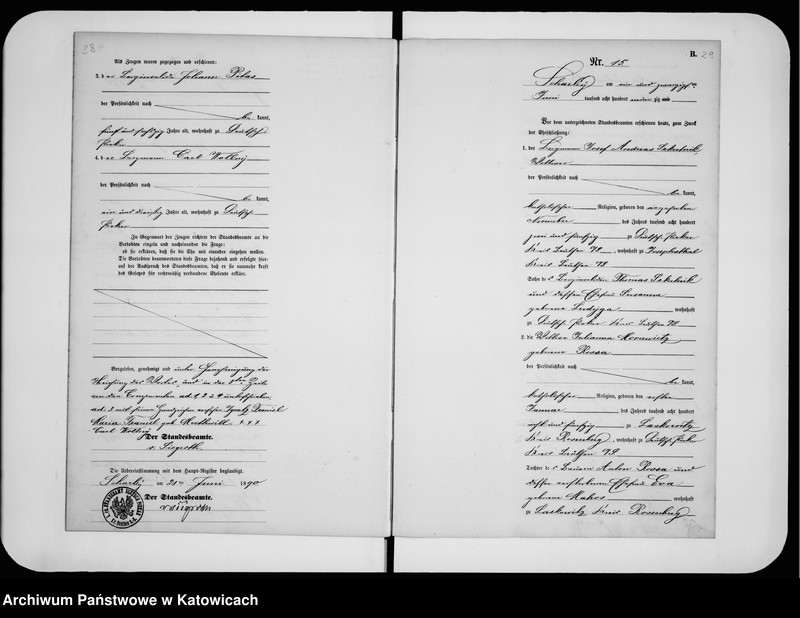 28
Als Zeugen waren zugezogen und erschienen:
3. der Berginvalide Johann Pelas
der Persönlichkeit nach
be kannt,
fünf und fünfzig Jahre alt, wohnhaft zu Deutsch
Piekar
4. der Bergmann Carl Wollny
der Persönlichkeit nach
be kannt,
ein und dreißig Jahre alt, wohnhaft zu Deutsch
Piekar
In Gegenwart der Zeugen richtete der Standesbeamte an die
Verlobten einzeln und nacheinander die Frage:
ob sie erklären, daß sie die Ehe mit einander eingehen wollen.
Die Verlobten beantworteten diese Frage bejahend und erfolgte hier-
auf der Ausspruch des Standesbeamten, daß er sie nunmehr kraft
des Gesetzes für rechtmäßig verbundene Eheleute erkläre.
Vorgelesen, genehmigt und unter Genehmigung der
Streichung des Wortes und in der Zeile
von den Comparenten ad. 1, 2 & 4 unterschrieben,
ad. 3 mit seinem Handzeichen versehen Ignatz Franiel
Maria Franiel geb. † † †
Carl Wollny
Der Standesbeamte.
v. Siegroth.
Die Uebereinstimmung mit dem Haupt-Register beglaubigt.
Scharley am 21ten Juni 1890
Der Standesbeamte.
v Siegroth
B. 29
Nr. 15
Scharley am ein und zwanzigsten
Juni tausend acht hundert neun zig und
Vor dem unterzeichneten Standesbeamten erschienen heute, zum Zweck
der Eheschließung:
1. der Bergmann Josef Andreas Sakulnik,
Wittwer
der Persönlichkeit nach
be kannt,
katholischer Religion, geboren den
November des Jahres tausend acht hundert
zwei und fünfzig zu Deutsch Piekar
Kreis Beuthen O/S, wohnhaft zu Josephsthal
Kreis Beuthen O/S
Sohn des Berginvaliden Thomas Sakulnik
und dessen Ehefrau Susanna
geborene Ludyga wohnhaft
zu Deutsch Piekar Kreis Beuthen O/S
2. die Wittwe Julianna Morawietz
geborene Rossa
der Persönlichkeit nach
be kannt,
katholischer Religion, geboren den ersten
Januar des Jahres tausend acht hundert
acht und fünfzig zu Laskowitz
Kreis Rosenberg, wohnhaft zu Deutsch Piekar
Kreis Beuthen O/S
Tochter des Bauern Anton Rossa und
dessen verstorbenen Ehefrau Eva
geborene wohnhaft
zu Laskowitz Kreis Rosenberg
Archiwum Państwowe w Katowicach